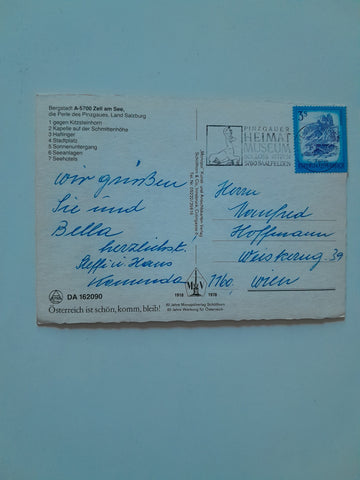 Bergstadt A-5700 Zell am See,
die Perle des Pinzgaues, Land Salzburg
1 gegen Kitzsteinhorn
2 Kapelle auf der Schmittenhöhe
3 Haflinger
4 Stadtplatz
5 Sonnenuntergang
6 Seeanlagen
7 Seehotels
wir grüßen
Sie und
Bella
herzlichst.
Steffi u. Hans
DA 162090
Österreich ist schön, komm, bleib!
1918 1978
60 Jahre Monopolverlag Schöllhorn
60 Jahre Werbung für Österreich
PINZGAUER
HEIMAT
MUSEUM
SCHLOSS RITZEN
5760 SAALFELDEN
3S
Herrn
Manfred
Hoffmann
39
1160 Wien